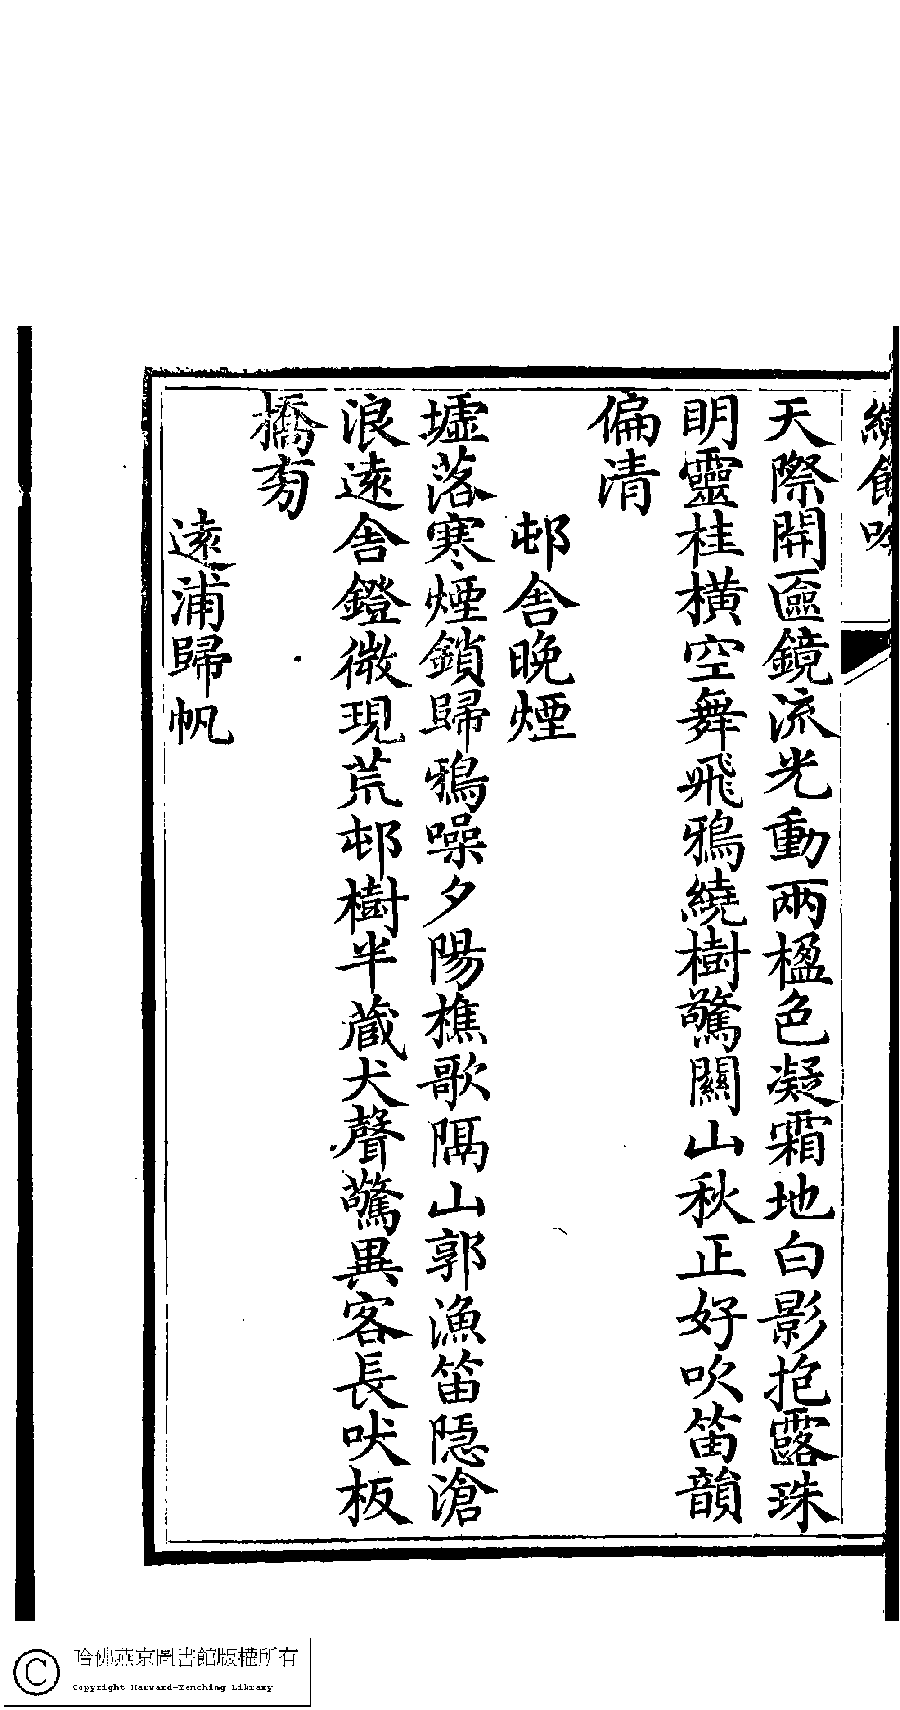 繡餘吟
天際開匳鏡流光動兩楹色凝霜地白影抱露珠
明靈桂橫空舞飛鴉繞樹驚關山秋正好吹笛韻
偏清
邨舍晚煙
墟落寒煙鎖歸鴉噪夕陽樵歌隔山郭漁笛隱滄
浪遠舍鐙微現荒邨樹半蔵犬聲驚異客長吠板
橋旁
遠浦歸帆
哈佛燕京圖書館版權所有
Copyright Harvard-Yenching Library